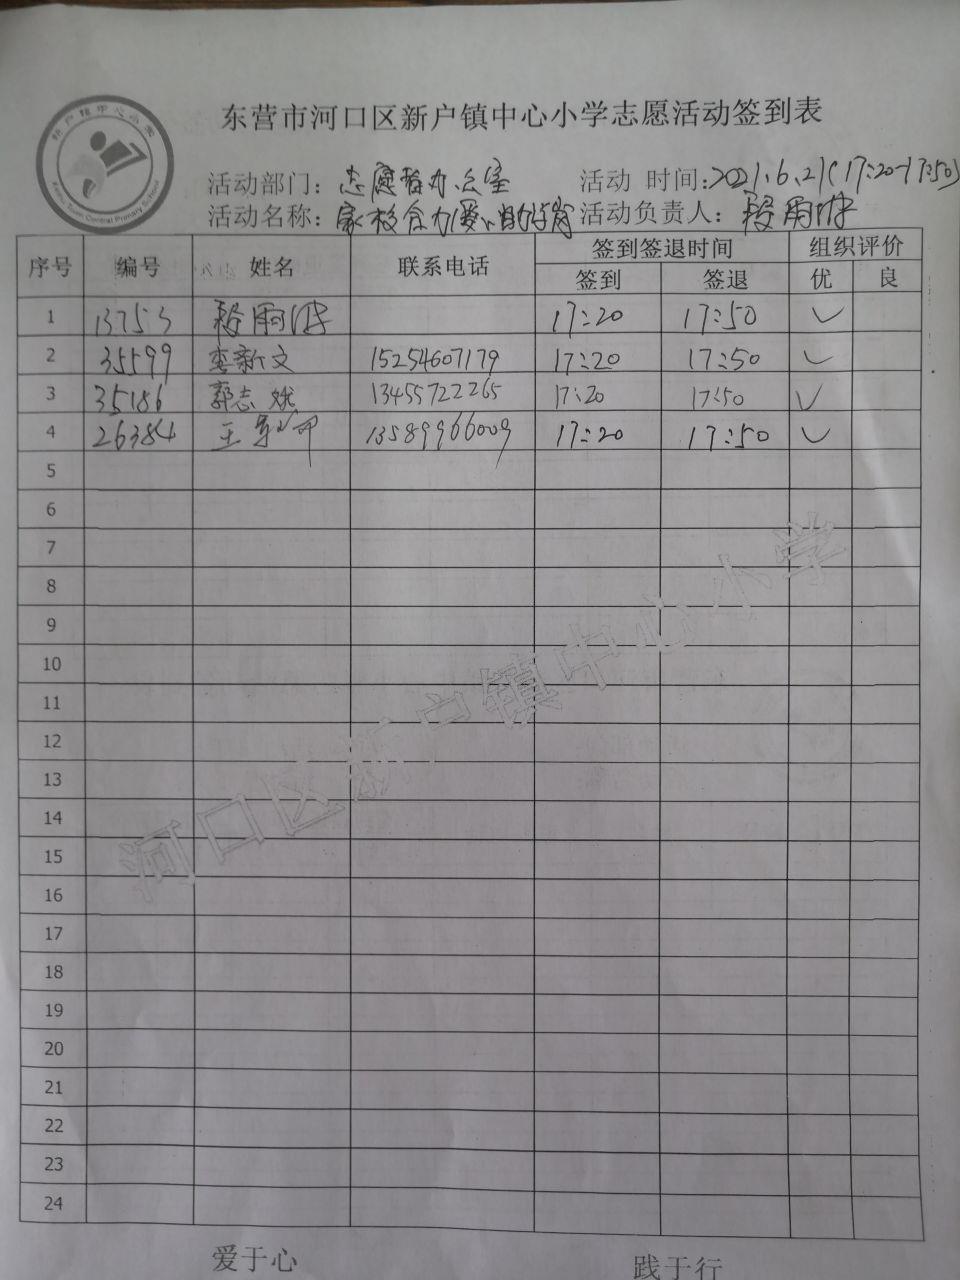 东营市河口区新户镇中心小学志愿活动签到表
新户镇中心小学
Xinhu Town Central Primary School
活动部门：志愿者办公室 活动 时间：2021.6.21（17:20-17:50）
活动名称：家校合力爱心助学岗 活动负责人：段雨
序号 编号 姓名 联系电话 签到签退时间 组织评价
签到 签退 优 良
1 13753 段雨 17:20 17:50 ✓
2 35599 栾新文 15254607179 17:20 17:50 ✓
3 35186 郭志斌 13455722265 17:20 17:50 ✓
4 26384 王 13589966009 17:20 17:50 ✓
5
6
7
8
9
10
11
12
13
14
15
16
17
18
19
20
21
22
23
24
河口区新户镇中心小学
爱于心 践于行